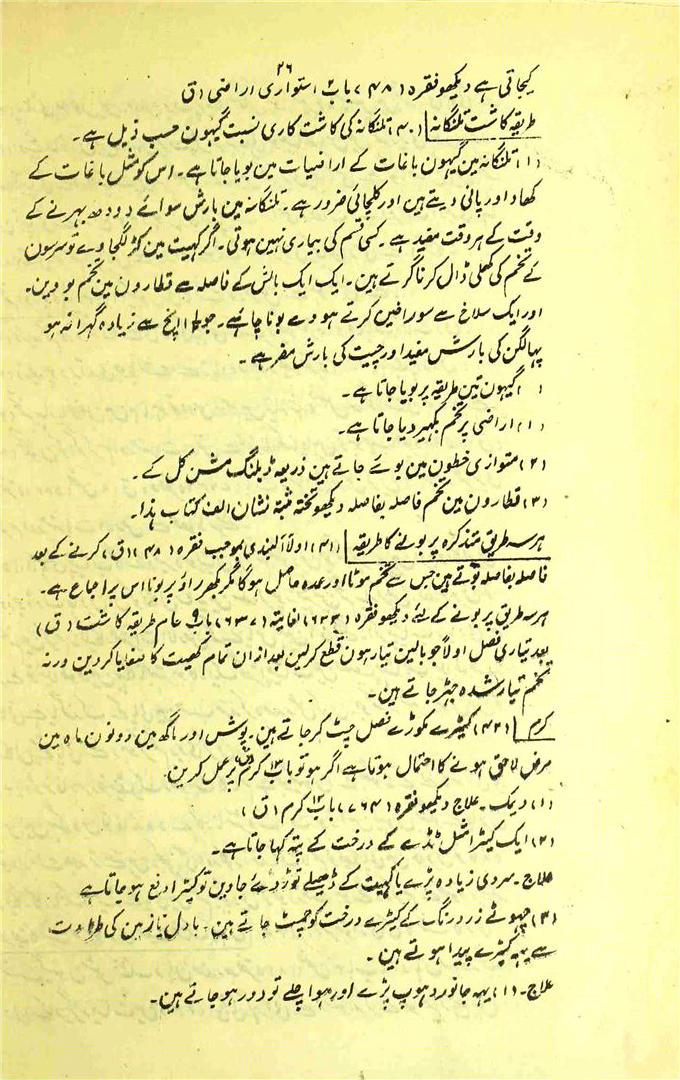 ۲۶
کیجاتی ہے دیکھو فقرہ (۴۸) باب ۲ استواری اراضی (ق)
طریقہ کاشت تلنگانہ (۴۰) تلنگانہ کی کاشت کاری نسبت گیہون حسب ذیل ہے۔
(۱) تلنگانہ مین گیہون باغات کے اراضیات مین بویا جاتا ہے۔ اس کو مثل باغات کے
کھاد اور پانی دیتے ہین اور کلچائی ضرور ہے۔ تلنگانہ مین بارش سوائے دودھ بہرنے کے
وقت کے ہر وقت مفید ہے۔ کسی قسم کی بیماری نہین ہوتی۔ اگر کہیت مین کڑ لگجاوے تو سرسون
کے تخم کی کھلی ڈال کرنا گرتے ہین۔ ایک ایک بالش کے فاصلہ سے قطارون مین تخم بودین۔
اور ایک سلاخ سے سوراخین کرتے ہوے بونا چاہئے۔ جو ۱ ۱ انچ سے زیادہ گہرا نہ ہو
پہالگن کی بارش مفید اور چیت کی بارش مضر ہے۔
گیہون تین طریقہ پر بویا جاتا ہے۔
(۱) اراضی پر تخم بکہیر دیا جاتا ہے۔
(۲) متوازی خطون مین بوئے جاتے ہین ذریعہ ڈبلنگ مشن کل کے۔
(۳) قطارون مین تخم فاصلہ بفاصلہ دیکھو تختہ ثبتہ نشان الف کتاب ہذا۔
ہر سہ طریق متذکرہ پر بونے کا طریقہ (۴۱) اولاً آلبندی بموجب فقرہ (۴۸) (ق) کرنے کے بعد
فاصلہ بفاصلہ بوتے ہین جس سے تخم موٹا اور عمدہ حاصل ہوگا مگر بکھراؤ پر بونا اس پر اجماع ہے۔
ہر سہ طریق پر بونے کے لئے دیکھو فقرہ (۶۳۳) لغایتہ (۶۳۷) باب ۹ عام طریقہ کاشت (ق)
بعد تیاری فصل اولاً جو بالین تیار ہون قطع کرلین بعد ازان تمام کھیت کا صفایا کردین ورنہ
تخم تیار شدہ جہڑ جاتے ہین۔
کرم (۴۲) کیڑے کوڑے فصل چٹ کر جاتے ہین۔ پوش اور ماگھ مین دونون ماہ مین
مرض لاحق ہونے کا احتمال ہوتا ہے اگر ہو تو باب ۱۲ کرم پر عمل کرین۔
(۱) دیمک۔ علاج دیکھو فقرہ (۷۶۴) باب ۱۲ کرم (ق)
(۲) ایک کیڑا مثل ٹڈے کے درخت کے پتہ کہا جاتا ہے۔
علاج۔ سردی زیادہ پڑے یا کہیت کے ڈہیلے توڑ دئے جاوین تو کیڑا دفع ہوجاتا ہے
(۳) چہوٹے زرد رنگ کے کیڑے درخت کو چمٹ جاتے ہین۔ بادل یا زمین کی طراوت
سے یہہ کیڑے پیدا ہوتے ہین۔
علاج۔ (۱) یہہ جانور دہوپ پڑے اور ہوا چلے تو دور ہوجاتے ہین۔